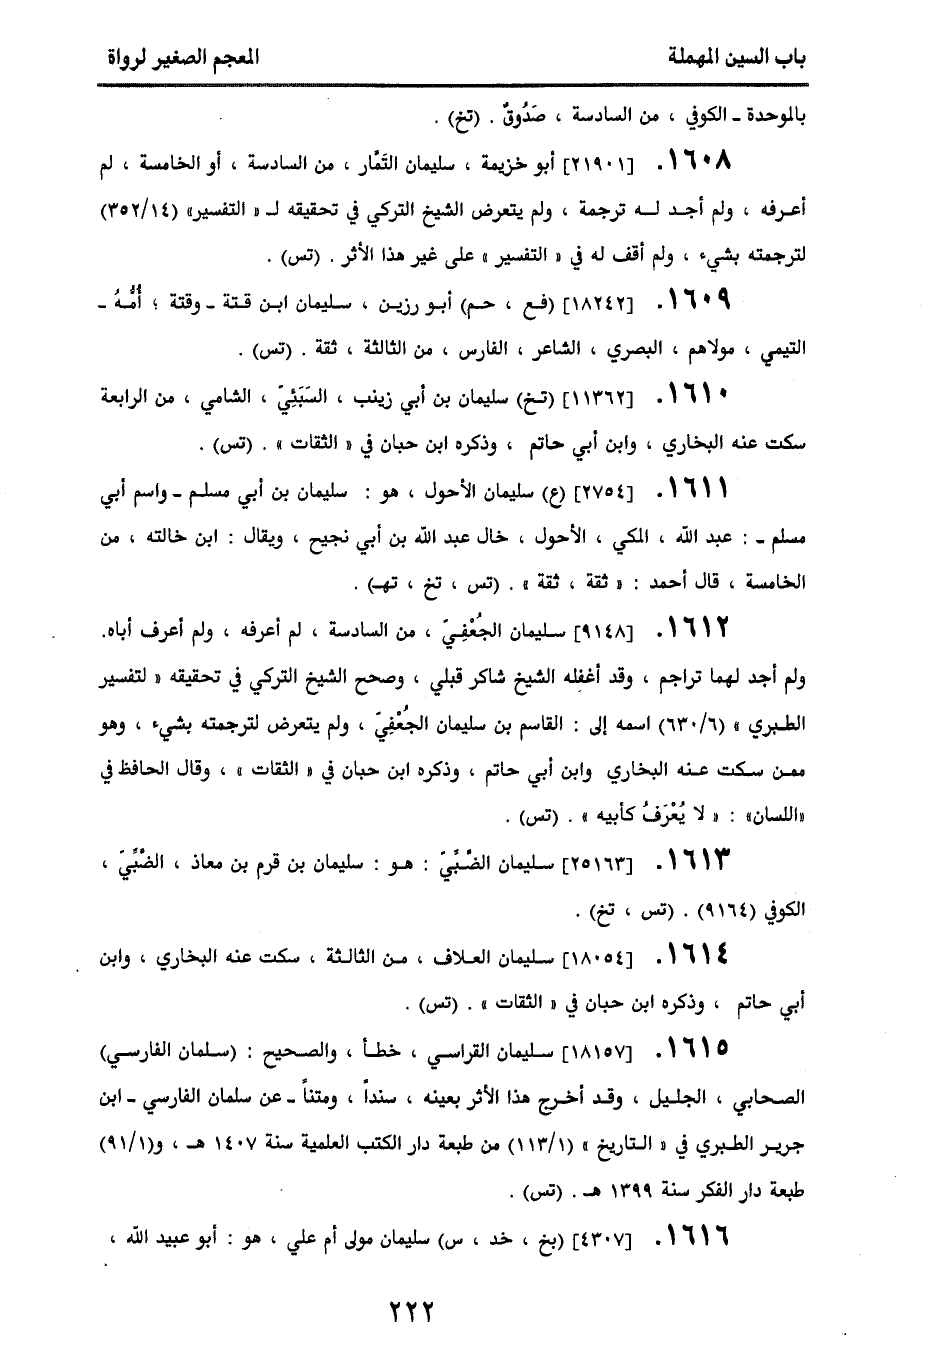 باب السين المهملة المعجم الصغير لرواة
بالموحدة ـ الكوفي ، من السادسة ، صَدُوقٌ . (تخ) .
١٦٠٨. [٢١٩٠١] أبو خزيمة ، سليمان التَمَّار ، من السادسة ، أو الخامسة ، لم
أعرفه ، ولم أجد لـه ترجمة ، ولم يتعرض الشيخ التركي في تحقيقه لـ « التفسير» (٣٥٢/١٤)
لترجمته بشيء ، ولم أقف له في « التفسير » على غير هذا الأثر . (تس) .
١٦٠٩. [١٨٢٤٢] (فع ، حم) أبو رزين ، سليمان ابن قتة ـ وقتة ؛ أُمُّهُ ـ
التيمي ، مولاهم ، البصري ، الشاعر ، الفارس ، من الثالثة ، ثقة . (تس) .
١٦١٠. [١١٣٦٢] (تخ) سليمان بن أبي زينب ، السَبَئِيّ ، الشامي ، من الرابعة
سكت عنه البخاري ، وابن أبي حاتم ، وذكره ابن حبان في « الثقات » . (تس) .
١٦١١. [٢٧٥٤] (ع) سليمان الأحول ، هو : سليمان بن أبي مسلم ـ واسم أبي
مسلم ـ : عبد الله ، المكي ، الأحول ، خال عبد الله بن أبي نجيح ، ويقال : ابن خالته ، من
الخامسة ، قال أحمد : « ثقة ، ثقة » . (تس ، تخ ، تهـ) .
١٦١٢. [٩١٤٨] سليمان الجُعْفِيّ ، من السادسة ، لم أعرفه ، ولم أعرف أباه.
ولم أجد لهما تراجم ، وقد أغفله الشيخ شاكر قبلي ، وصحح الشيخ التركي في تحقيقه « لتفسير
الطبري » (٦٣٠/٦) اسمه إلى : القاسم بن سليمان الجُعْفِيّ ، ولم يتعرض لترجمته بشيء ، وهو
ممن سكت عنه البخاري وابن أبي حاتم ، وذكره ابن حبان في « الثقات » ، وقال الحافظ في
«اللسان» : « لا يُعْرَفُ كأبيه » . (تس) .
١٦١٣. [٢٥١٦٣] سليمان الضَّبِّيّ : هو : سليمان بن قرم بن معاذ ، الضَّبِّيّ ،
الكوفي (٩١٦٤) . (تس ، تخ) .
١٦١٤. [١٨٠٥٤] سليمان العلاف ، من الثالثة ، سكت عنه البخاري ، وابن
أبي حاتم ، وذكره ابن حبان في « الثقات » . (تس) .
١٦١٥. [١٨١٥٧] سليمان القراسي ، خطأ ، والصحيح : (سلمان الفارسي)
الصحابي ، الجليل ، وقد أخرج هذا الأثر بعينه ، سنداً ، ومتناً ـ عن سلمان الفارسي ـ ابن
جرير الطبري في « التاريخ » (١١٣/١) من طبعة دار الكتب العلمية سنة ١٤٠٧ هـ ، و(٩١/١)
طبعة دار الفكر سنة ١٣٩٩ هـ . (تس) .
١٦١٦. [٤٣٠٧] (بخ ، خد ، س) سليمان مولى أم علي ، هو : أبو عبيد الله ،
٢٢٢